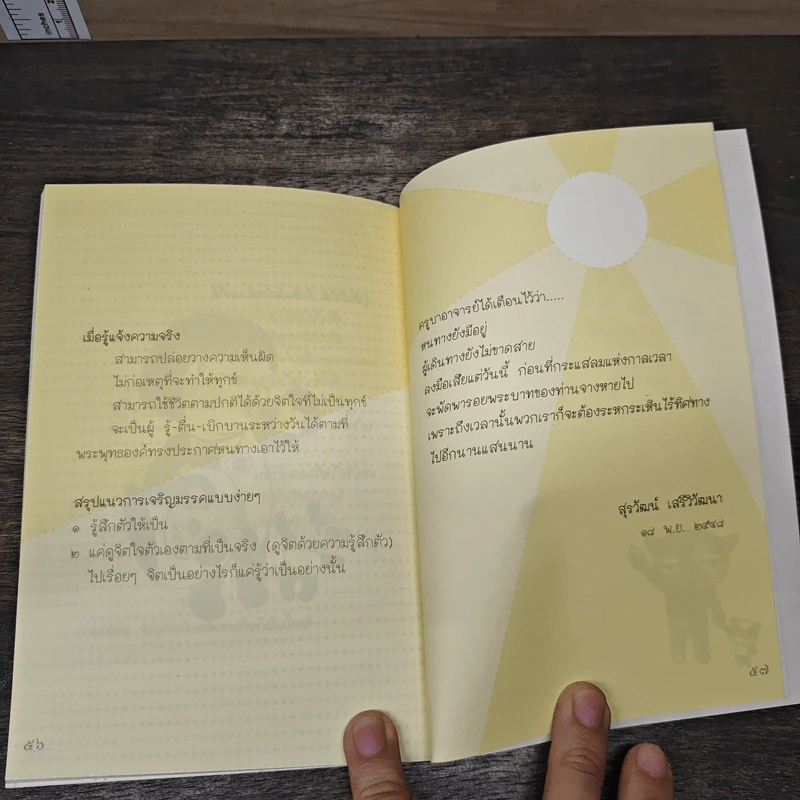 เมื่อรู้แจ้งความจริง
สามารถปล่อยวางความเห็นผิด
ไม่ก่อเหตุที่จะทำให้ทุกข์
สามารถใช้ชีวิตตามปกติได้ด้วยจิตใจที่ไม่เป็นทุกข์
จะเป็นผู้ รู้-ตื่น-เบิกบานระหว่างวันได้ตามที่
พระพุทธองค์ทรงประกาศหนทางเอาไว้ให้
สรุปแนวการเจริญมรรคแบบง่ายๆ
๑ รู้สึกตัวให้เป็น
๒ แค่ดูจิตใจตัวเองตามที่เป็นจริง (ดูจิตด้วยความรู้สึกตัว)
ไปเรื่อยๆ จิตเป็นอย่างไรก็แค่รู้ว่าเป็นอย่างนั้น
๕๖
ครูบาอาจารย์ได้เตือนไว้ว่า.....
หนทางยังมีอยู่
ผู้เดินทางยังไม่ขาดสาย
ลงมือเสียแต่วันนี้ ก่อนที่กระแสลมแห่งกาลเวลา
จะพัดพารอยพระบาทของท่านจางหายไป
เพราะถึงเวลานั้นพวกเราก็จะต้องระหกระเหินไร้ทิศทาง
ไปอีกนานแสนนาน
สุรวัฒน์ เสรีวิวัฒนา
๑๘ พ.ย. ๒๕๔๘
๕๗
inches
1